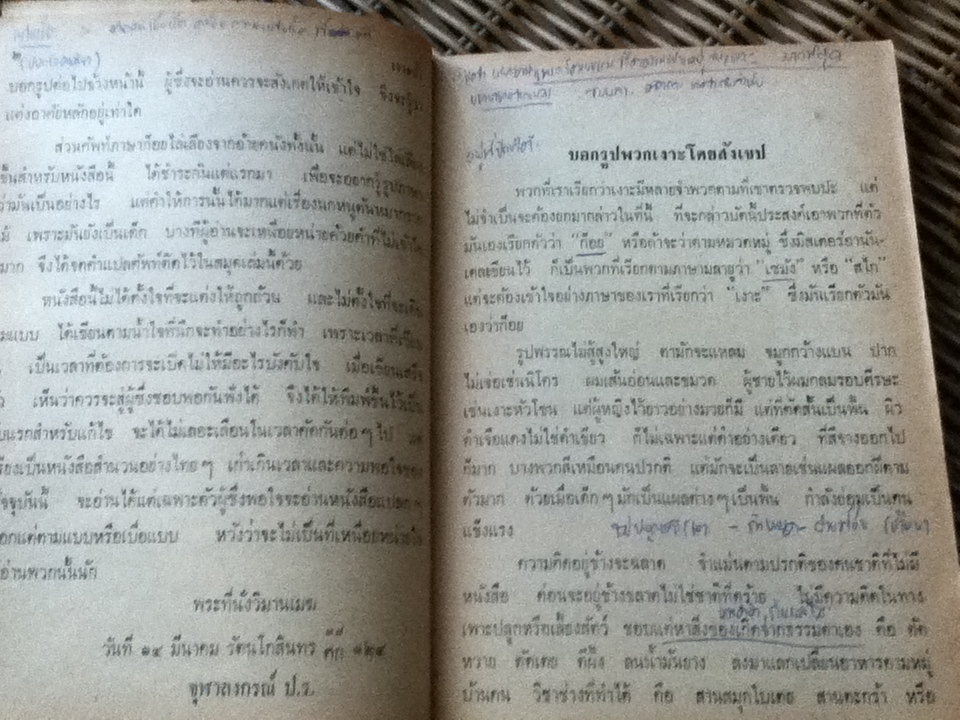 บอกรูปต่อไปข้างหน้านี้ ผู้ซึ่งจะอ่านควรจะสังเกตให้เข้าใจ จึงจะรู้
แต่งอาศัยหลักอยู่เท่าใด
ส่วนศัพท์ภาษาก๊อยไล่เลียงจากอ้ายคนังทั้งนั้น แต่ไม่ใช่ไล่เลียง
ขึ้นสำหรับหนังสือนี้ ได้ชำระกันแต่แรกมา เพื่อจะอยากรู้รูปภาษา
ว่ามันเป็นอย่างไร แต่คำให้การนั้นได้มากแต่เรื่องนกหนูต้นหมากรากไ
ม้ เพราะมันยังเป็นเด็ก บางทีผู้อ่านจะเหนื่อยหน่ายด้วยคำที่ไม่เข้าใจ
มาก จึงได้จดคำแปลศัพท์ติดไว้ในสมุดเล่มนี้ด้วย
หนังสือนี้ไม่ได้ตั้งใจที่จะแต่งให้ถูกถ้วน และไม่ตั้งใจที่จะ
มแบบ ได้เขียนตามน้ำใจที่นึกจะทำอย่างไรก็ทำ เพราะเวลาที่เขียน
เป็นเวลาที่ต้องการจะเบิดไม่ให้มีอะไรบังคับใจ เมื่อเขียนเสร็จ
ว เห็นว่าควรจะสู่ผู้ซึ่งชอบพอกันฟังได้ จึงได้ให้พิมพ์ขึ้นไว้เป็น
บแรกสำหรับแก้ไข จะได้ไม่เลอะเลือนในเวลาคัดกันต่อๆ ไป
รียงเป็นหนังสือสำนวนอย่างไทยๆ เก่าเกินเวลาและความพอใจของ
ัจจุบันนี้ จะอ่านได้แต่เฉพาะตัวผู้ซึ่งพอใจจะอ่านหนังสือแปลก
อกแต่ตามแบบหรือเบื่อแบบ หวังว่าจะไม่เป็นที่เหนื่อยหน่ายใจ
อ่านพวกนั้นนัก
พระที่นั่งวิมานเมฆ
วันที่ ๑๔ มีนาคม รัตนโกสินทร ศก ๑๒๔
จุฬาลงกรณ์ ป.ร.
บอกรูปพวกเงาะโดยสังเขป
พวกที่เราเรียกว่าเงาะมีหลายจำพวกตามที่เขาตรวจพบปะ แต่
ไม่จำเป็นจะต้องยกมากล่าวในที่นี้ ที่จะกล่าวบัดนี้ประสงค์เอาพวกที่ตัว
มันเองเรียกตัวว่า "ก๊อย" หรือถ้าจะว่าตามหมวดหมู่ ซึ่งมิสเตอร์อานัน-
เดลเขียนไว้ ก็เป็นพวกที่เรียกตามภาษามลายูว่า "เซมัง" หรือ "สไก"
แต่จะต้องเข้าใจอย่างภาษาของเราที่เรียกว่า "เงาะ" ซึ่งมันเรียกตัวมัน
เองว่าก๊อย
รูปพรรณไม่สู้สูงใหญ่ ตามักจะแหลม จมูกกว้างแบน ปาก
ไม่เจ่อเช่นนิโกร ผมเส้นอ่อนและขมวด ผู้ชายไว้ผมกลมรอบศีรษะ
เช่นเงาะหัวโขน แต่ผู้หญิงไว้ยาวอย่างมวยก็มี แต่ที่ตัดสั้นเป็นพื้น ผิว
ดำเจือแดงไม่ใช่ดำเขียว ก็ไม่เฉพาะแต่ดำอย่างเดียว ที่สีจางออกไป
ก็มาก บางพวกสีเหมือนคนปรกติ แต่มักจะเป็นลายเช่นแผลออกฝีตาม
ตัวมาก ด้วยเมื่อเด็กๆ มักเป็นแผลต่างๆ เป็นพื้น กำลังย่อมเป็นคน
แข็งแรง
ความคิดอยู่ข้างจะฉลาด จำแม่นตามปรกติของคนชาติที่ไม่มี
หนังสือ ค่อนจะอยู่ข้างขลาดไม่ใช่ชาติที่ดุร้าย ไม่มีความคิดในทาง
เพาะปลูกหรือเลี้ยงสัตว์ ชอบแต่หาสิ่งของเกิดจากธรรมดาเอง คือ ตัด
หวาย ตัดเตย ตีผึ้ง ลนน้ำมันยาง ลงมาแลกเปลี่ยนอาหารตามหมู่
บ้านคน วิชาช่างที่ทำได้ คือ สานสมุกใบเตย สานตะกร้า หรือ